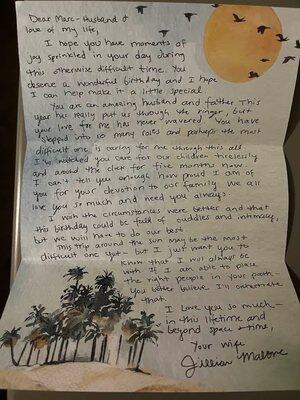 Dear Marc - Husband &
love of my life,
I hope you have moments of
joy sprinkled in your day during
this otherwise difficult time. You
deserve a wonderful birthday and I hope
I can help make it a little special
You are an amazing husband and father. This
year has really put us through the ringer, but
your love for me has never wavered. You have
stepped into so many roles and perhaps the most
difficult one is caring for me through this all
I've watched you care for our children tirelessly
and around the clock for five months now.
I can't tell you enough how proud I am of
you for your devotion to our family. We all
love you so much and need you always
I wish the circumstances were better and that
this birthday could be full of cuddles and intimacy,
but we will have to do our best
This trip around the sun may be the most
difficult one yet - but I just want you to
know that I will always be
with you. If I am able to place
the right people in your path -
you better believe I'll orchestrate
that.
I love you so much -
in this lifetime and
beyond space & time,
Your wife
Jillian Malone